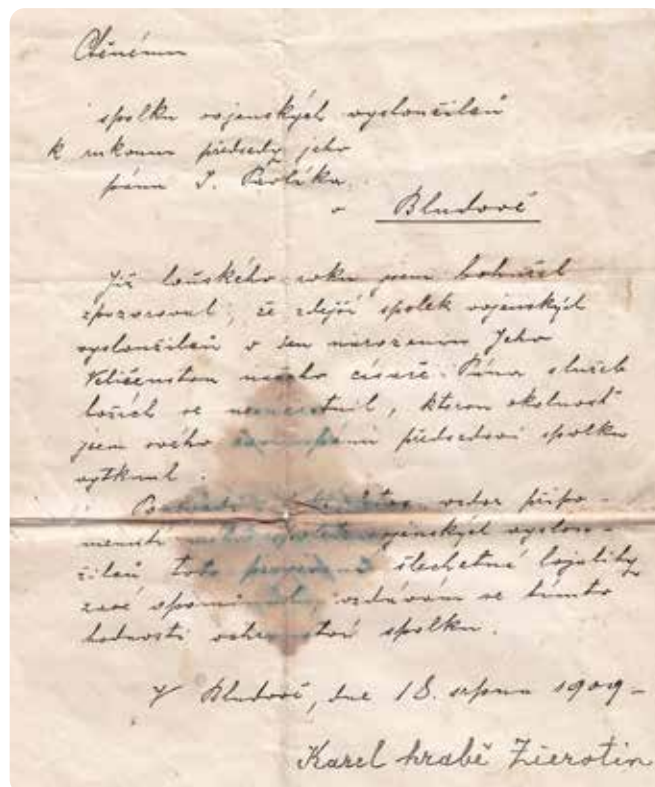 Ctěnému
spolku vojenských vysloužilců
k rukoum předsedy jeho
pána J.
v Bludově
Již loňského roku jsem bohužel
zpozoroval, že zdejší spolek vojenských
vysloužilců v den narozenin Jeho
Veličenstva našeho císaře Pána služeb
božích se nezúčastnil, kterou okolnosť
jsem svého času pánu předsedovi spolku
vytknul.
letos vzdor připo-
menutí spolek vojenských vyslou-
žilců tuto povinnosť šlechetné loyality
zase opomenul, vzdávám se tímto
hodnosti ochranitele spolku.
V Bludově, dne 18. srpna 1909 -
Karel hrabě Zierotin